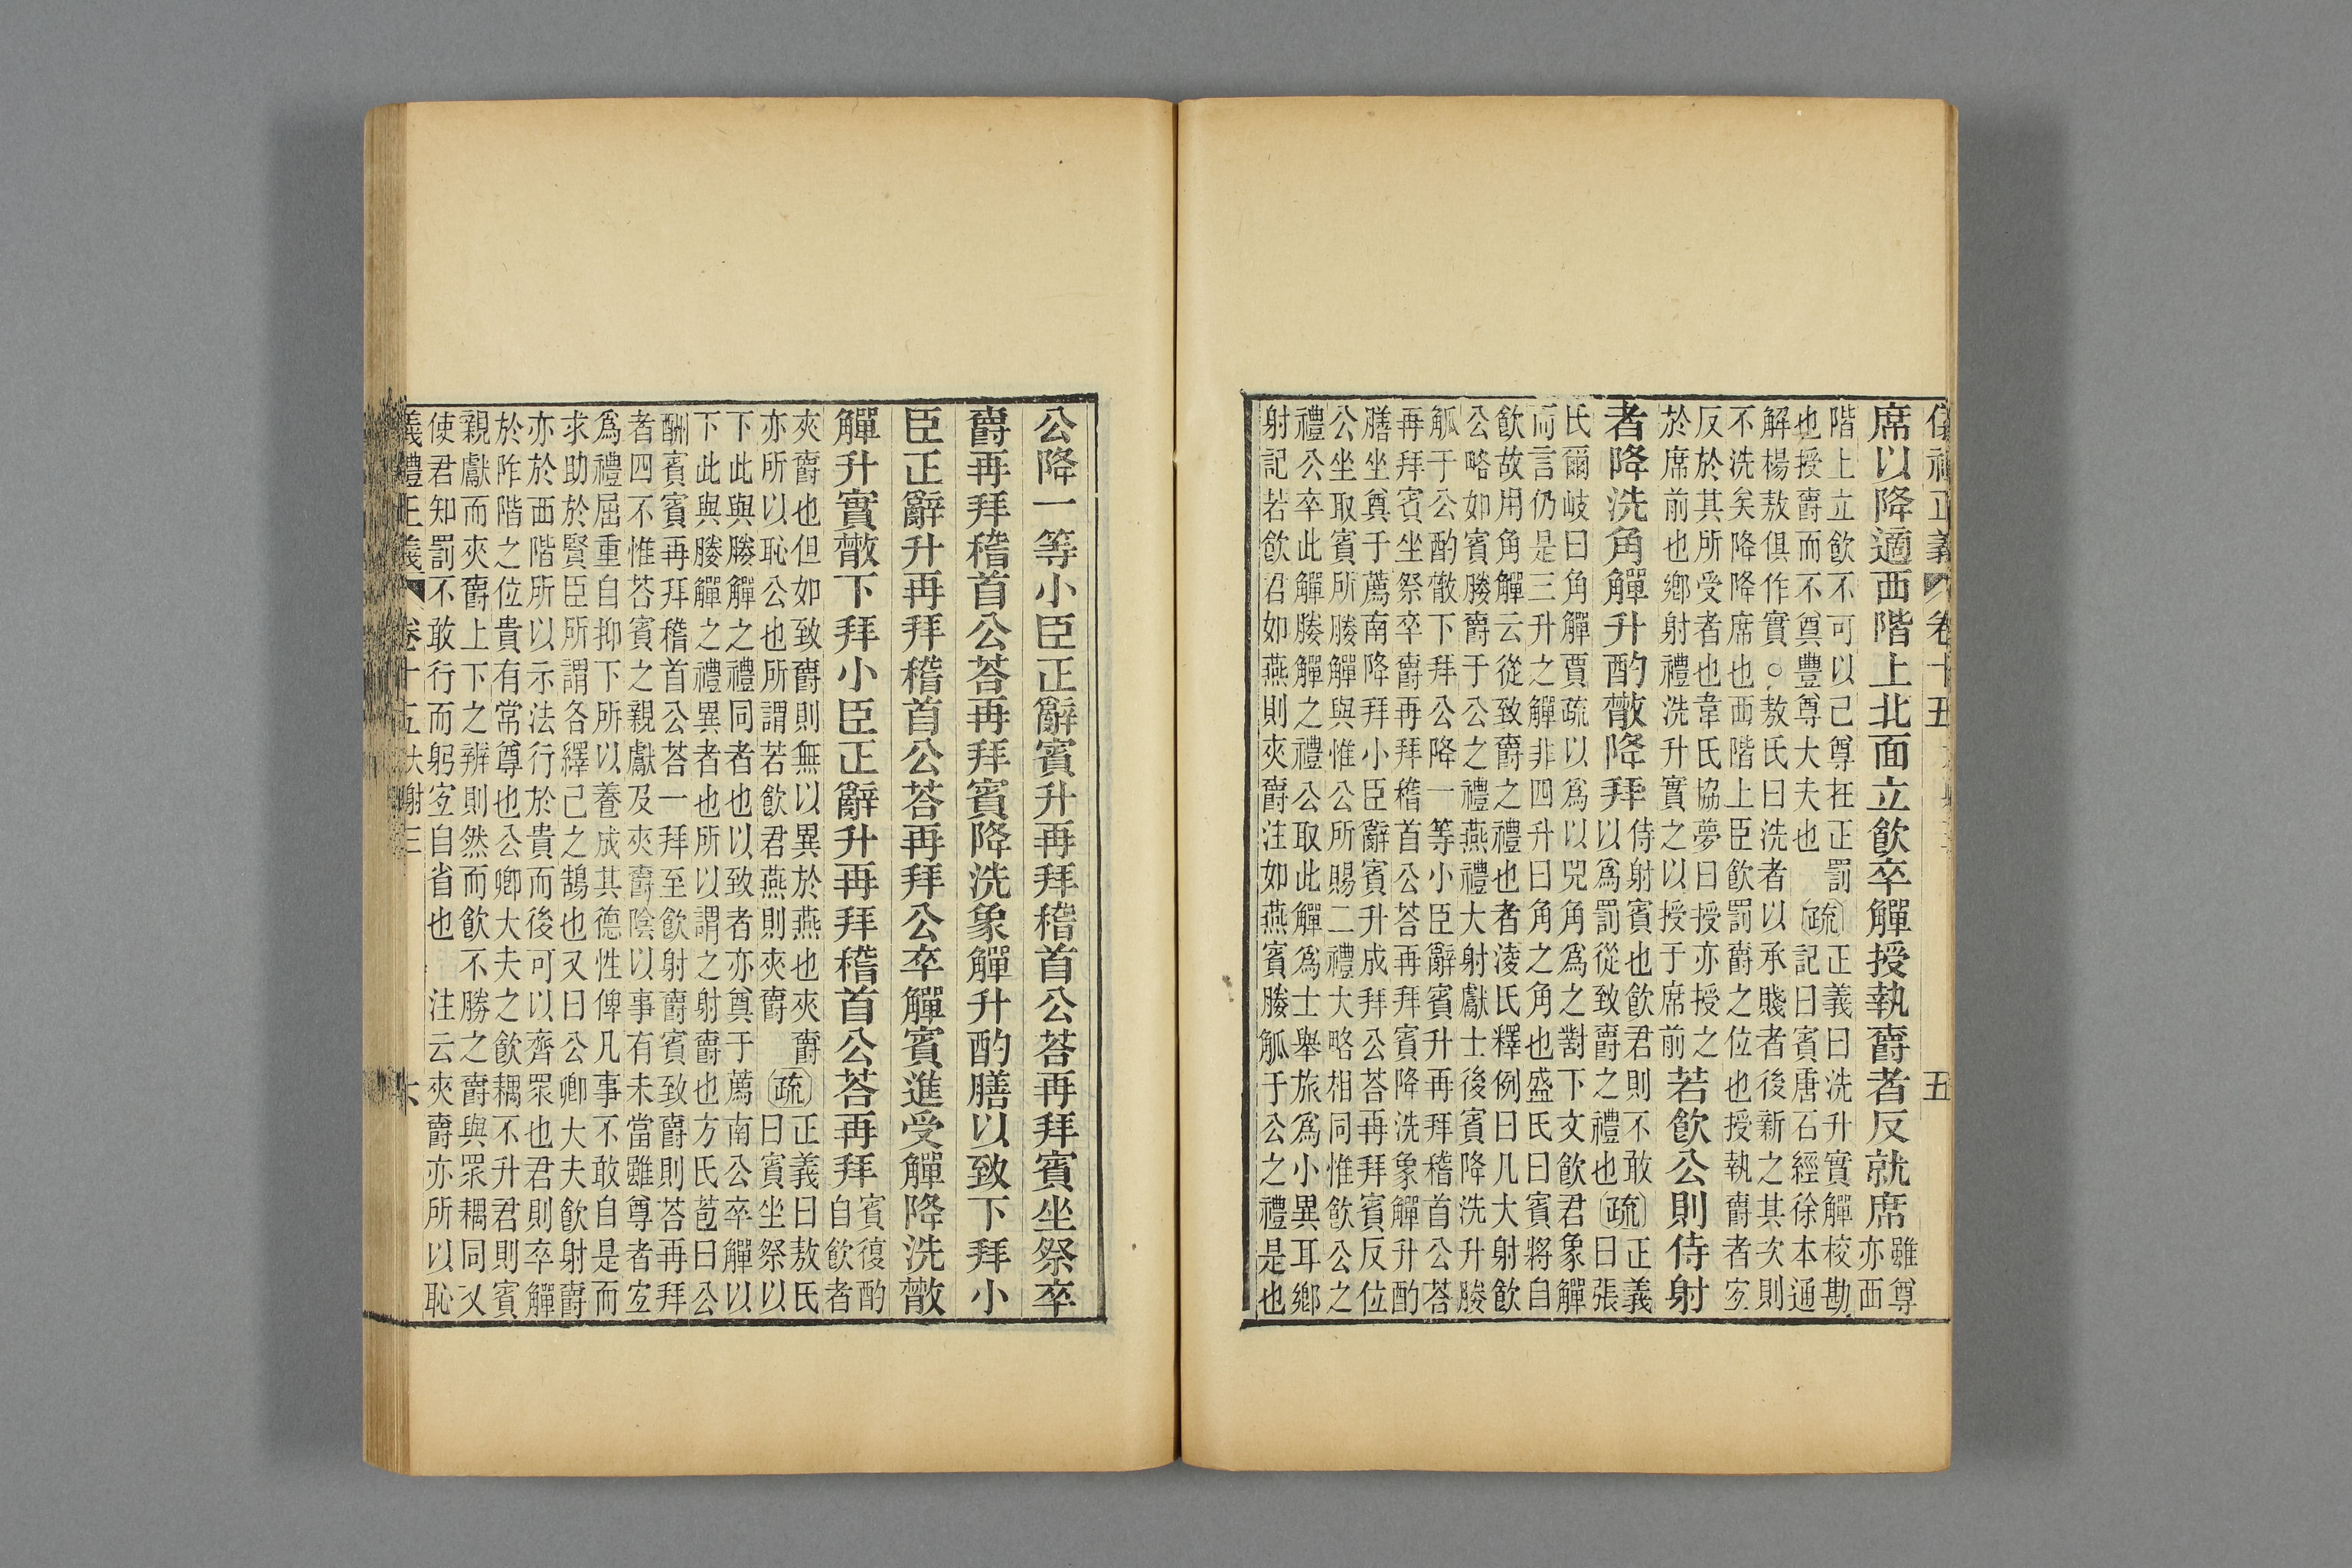 席以降適西階上北面立飲卒觶授執爵者反就席雖尊
亦西
階上立飲不可以己尊枉正罰
也授爵而不奠豐尊大夫也
疏正義曰洗升實觶校勘
記曰賓唐石經徐本通
解楊敖俱作實○敖氏曰洗者以承賤者後新之其次則
不洗矣降降席也西階上臣飲罰爵之位也授執爵者㝎
反於其所受者也韋氏協夢曰授亦授之
於席前也鄉射禮洗升實之以授于席前
若飲公則侍射
者降洗角觶升酌散降拜
侍射賓也飲君則不敢
以為罰從致爵之禮也
疏正義
曰張
氏爾岐曰角觶賈疏以爲以兕角爲之對下文飲君象觶
而言仍是三升之觶非四升曰角之角也盛氏曰賓將自
飲故用角觶云從致爵之禮也者淩氏釋例曰凡大射飲
公略如賓媵爵于公之禮燕禮大射獻士後賓降洗升媵
觚于公酌散下拜公降一等小臣辭賓升再拜稽首公荅
再拜賓坐祭卒爵再拜稽首公荅再拜賓降洗象觶升酌
膳坐奠于薦南降拜小臣辭賓升成拜公荅再拜賓反位
公坐取賓所媵觶與惟公所賜二禮大略相同惟飲公之
禮公卒此觶媵觶之禮公取此觶爲士舉旅爲小異耳鄉
射記若飲君如燕則夾爵注如燕賓媵觚于公之禮是也
公降一等小臣正辭賓升再拜稽首公荅再拜賓坐祭卒
爵再拜稽首公荅再拜賓降洗象觶升酌膳以致下拜小
臣正辭升再拜稽首公荅再拜公卒觶賓進受觶降洗散
觶升實散下拜小臣正辭升再拜稽首公荅再拜
賓復酌
自飲者
夾爵也但如致爵則無以異於燕也夾爵
亦所以恥公也所謂若飲君燕則夾爵
疏正義曰敖氏
曰賓坐祭以
下此與媵觶之禮同者也以致者亦奠于薦南公卒觶以
下此與媵觶之禮異者也所以謂之射爵也方氏苞曰公
酬賓賓再拜稽首公荅一拜至飲射爵賓致爵則荅再拜
者四不惟荅賓之親獻及夾爵陰以事有未當雖尊者㝎
爲禮屈重自抑下所以養成其德性俾凡事不敢自是而
求助於賢臣所謂各繹己之鵠也又曰公卿大夫飲射爵
亦於西階所以示法行於貴而後可以齊眾也君則卒觶
於阼階之位貴有常尊也公卿大夫之飲耦不升君則賓
親獻而夾爵上下之辨則然而飲不勝之爵與眾耦同乂
使君知罰不敢行而躬㝎自省也　注云夾爵亦所以恥